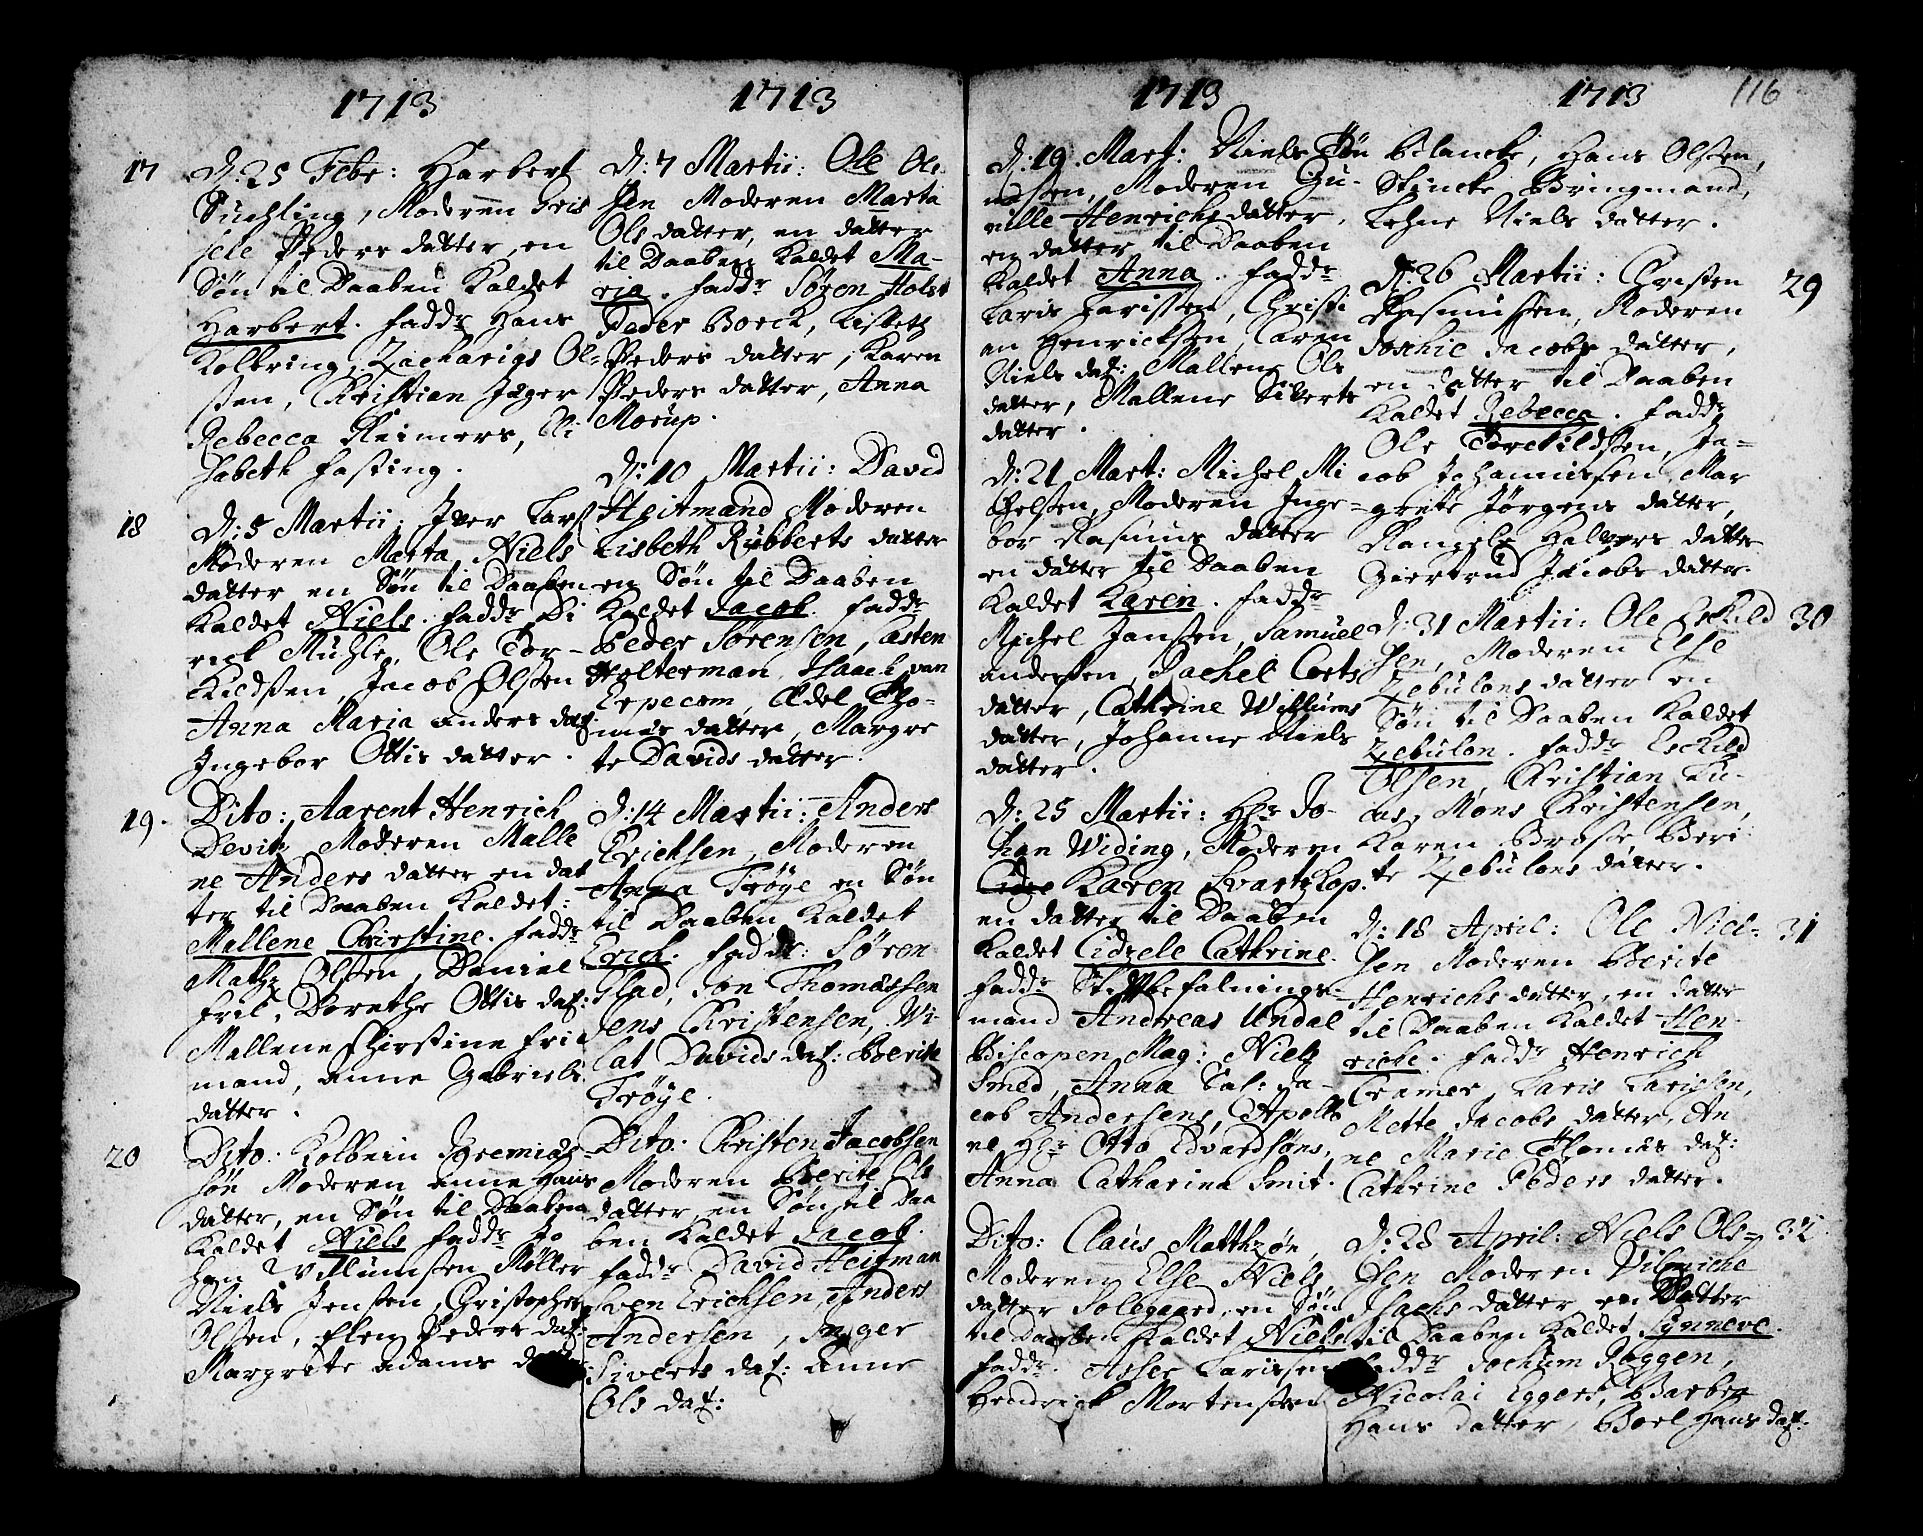 1713
17
D: 25 Febr: Harbert
Suhling, Moderen Gris
sele Peders datter, en
Søn til Daaben Kaldet
Harbert. fadd: Hans
Kolbring, Zacharias Ol-
sen, Christian Jæger
Rebecca Reimers, Eli
sabeth Fasting.
18
D: 5 Martii: Iver Lars
Moderen Marta Niels
datter en Søn til Daaben
Kaldet Niels. fadd: Di
rich Mühle, Ole Tor-
kildsen, Jacob Olsen
Anna Maria Anders dat:
Ingebor Ottis datter.
19.
Dito: Aarent Henrich
Devitz Moderen Malle
ne Anders datter en dat
ter til Daaben Kaldet:
Mallene Christine. fadd:
Mathz Olsen, Daniel
Friis, Dorethe Ottis dat:
Mallene Chirstine Frie
mand, Anne Gabriels
datter.
20
Dito: Kolbein Jeremias
søn Moderen Anne Hans
datter, en Søn til Daaben
Kaldet Niels fadd: Jo
han Villumsen Møller
Niels Jensen, Christopher
Olsen, Elen Peders dat:
Margrete Adams
1713
D: 7 Martii: Ole Ol-
sen Moderen Marta
Ols datter, en datter
til Daaben Kaldet Ma-
ria. fadd: Søren Holst
Peder Borck, Lisbeth
Peders datter, Karen
Peders datter, Anna
Morup.
D: 10 Martii: David
Heitmand Moderen
Lisbeth Rubberts datter
en Søn til Daaben
Kaldet Jacob. fadd:
Peder Sørensen, Casten
Holterman, Isaach van
Erpecom, Edel Tho-
mas datter, Margre
te Davids datter.
D: 14 Martii: Anders
Erichsen, Moderen
Anna Frøye en Søn
til Daaben Kaldet
Erich. fadd: Søren
Glad, Jon Thomassen
Jens Christensen, Vi-
cat Davids dat: Berite
Frøye.
Dito: Christen Jacobsen
Moderen Berite Ols
datter, en Søn til Daa
ben Kaldet Jacob.
fadd: David Heitman
Sven Erichsen, Anders
Andersen, Inger
Siverts dat: Anne
Ols dat:
1713
D: 19 Mart: Niels Søn
nesen, Moderen Gu-
nille Henrichs datter,
en datter til Daaben
Kaldet Anna. fadd:
Laris Larissen, Christi
an Henricksen, Caren
Niels dat: Mallene Ols
datter, Mallene Siverts
datter.
D: 21 Mart: Michel Mi
chelsen, Moderen Inge-
bor Rasmus datter
en datter til Daaben
Kaldet Karen. fadd:
Michel Jansen, Samuel
Andersen, Rachel Corts
datter, Cathrine Willums
datter, Johanne Niels
datter.
D: 25 Martii: Hr. Jo-
han Widing, Moderen
Karen Svartzkop.
en datter til Daaben
Kaldet Cidzele Cathrine.
fadd: Stiftbefalnings-
mand Andreas Undal
Biscopen Mag: Nielz
Smed, Anna Sal: Ja-
cob Andersens, Apollo
ne Hr Otto Edvardsøns,
Anna Catharina Smit.
Dito: Claus Matthzøn,
Moderen Else Niels
datter Solegaard, en Søn
til Daaben Kaldet Niels
fadd: Asser Larissen
Hendrick Mortensen
1713 116
Blancke, Hans Olsen,
Stincke Bringmand,
Lehne Niels datter.
29
D: 26 Martii: Christen
Rasmussen, Moderen
Sophie Jacobs datter,
en datter til Daaben
Kaldet Rebecca. fadd:
Ole Torckildsen, Ja-
cob Johannissen, Mar
grete Jørgens datter,
Rangele Halvors datter
Giertrud Jacobs datter.
30
D: 31 Martii: Ole Eskild
sen, Moderen Else
Zebulons datter en
Søn til Daaben Kaldet
Zebulon. fadd: Eskild
Olsen, Christian Lu-
cas, Mons Christensen,
Karen Brosse Beri
te Zebulons datter.
31
D: 18 April: Ole Niel-
sen Moderen Berite
Henrichs datter, en datter
til Daaben Kaldet Hen-
riche. fadd: Henrich
Cramer, Laris Larissen,
Mette Jacobs datter, An
ne Marie Thomas dat:
Cathrine Peders datter.
32
D: 28 April: Niels Ols-
sen Moderen Vibriche
Isachs datter en Datter
til Daaben Kaldet Synneve.
fadd: Jochum Roggen,
Nicolai Eggers, Barbra
Hans datter, Boel Hans dat: